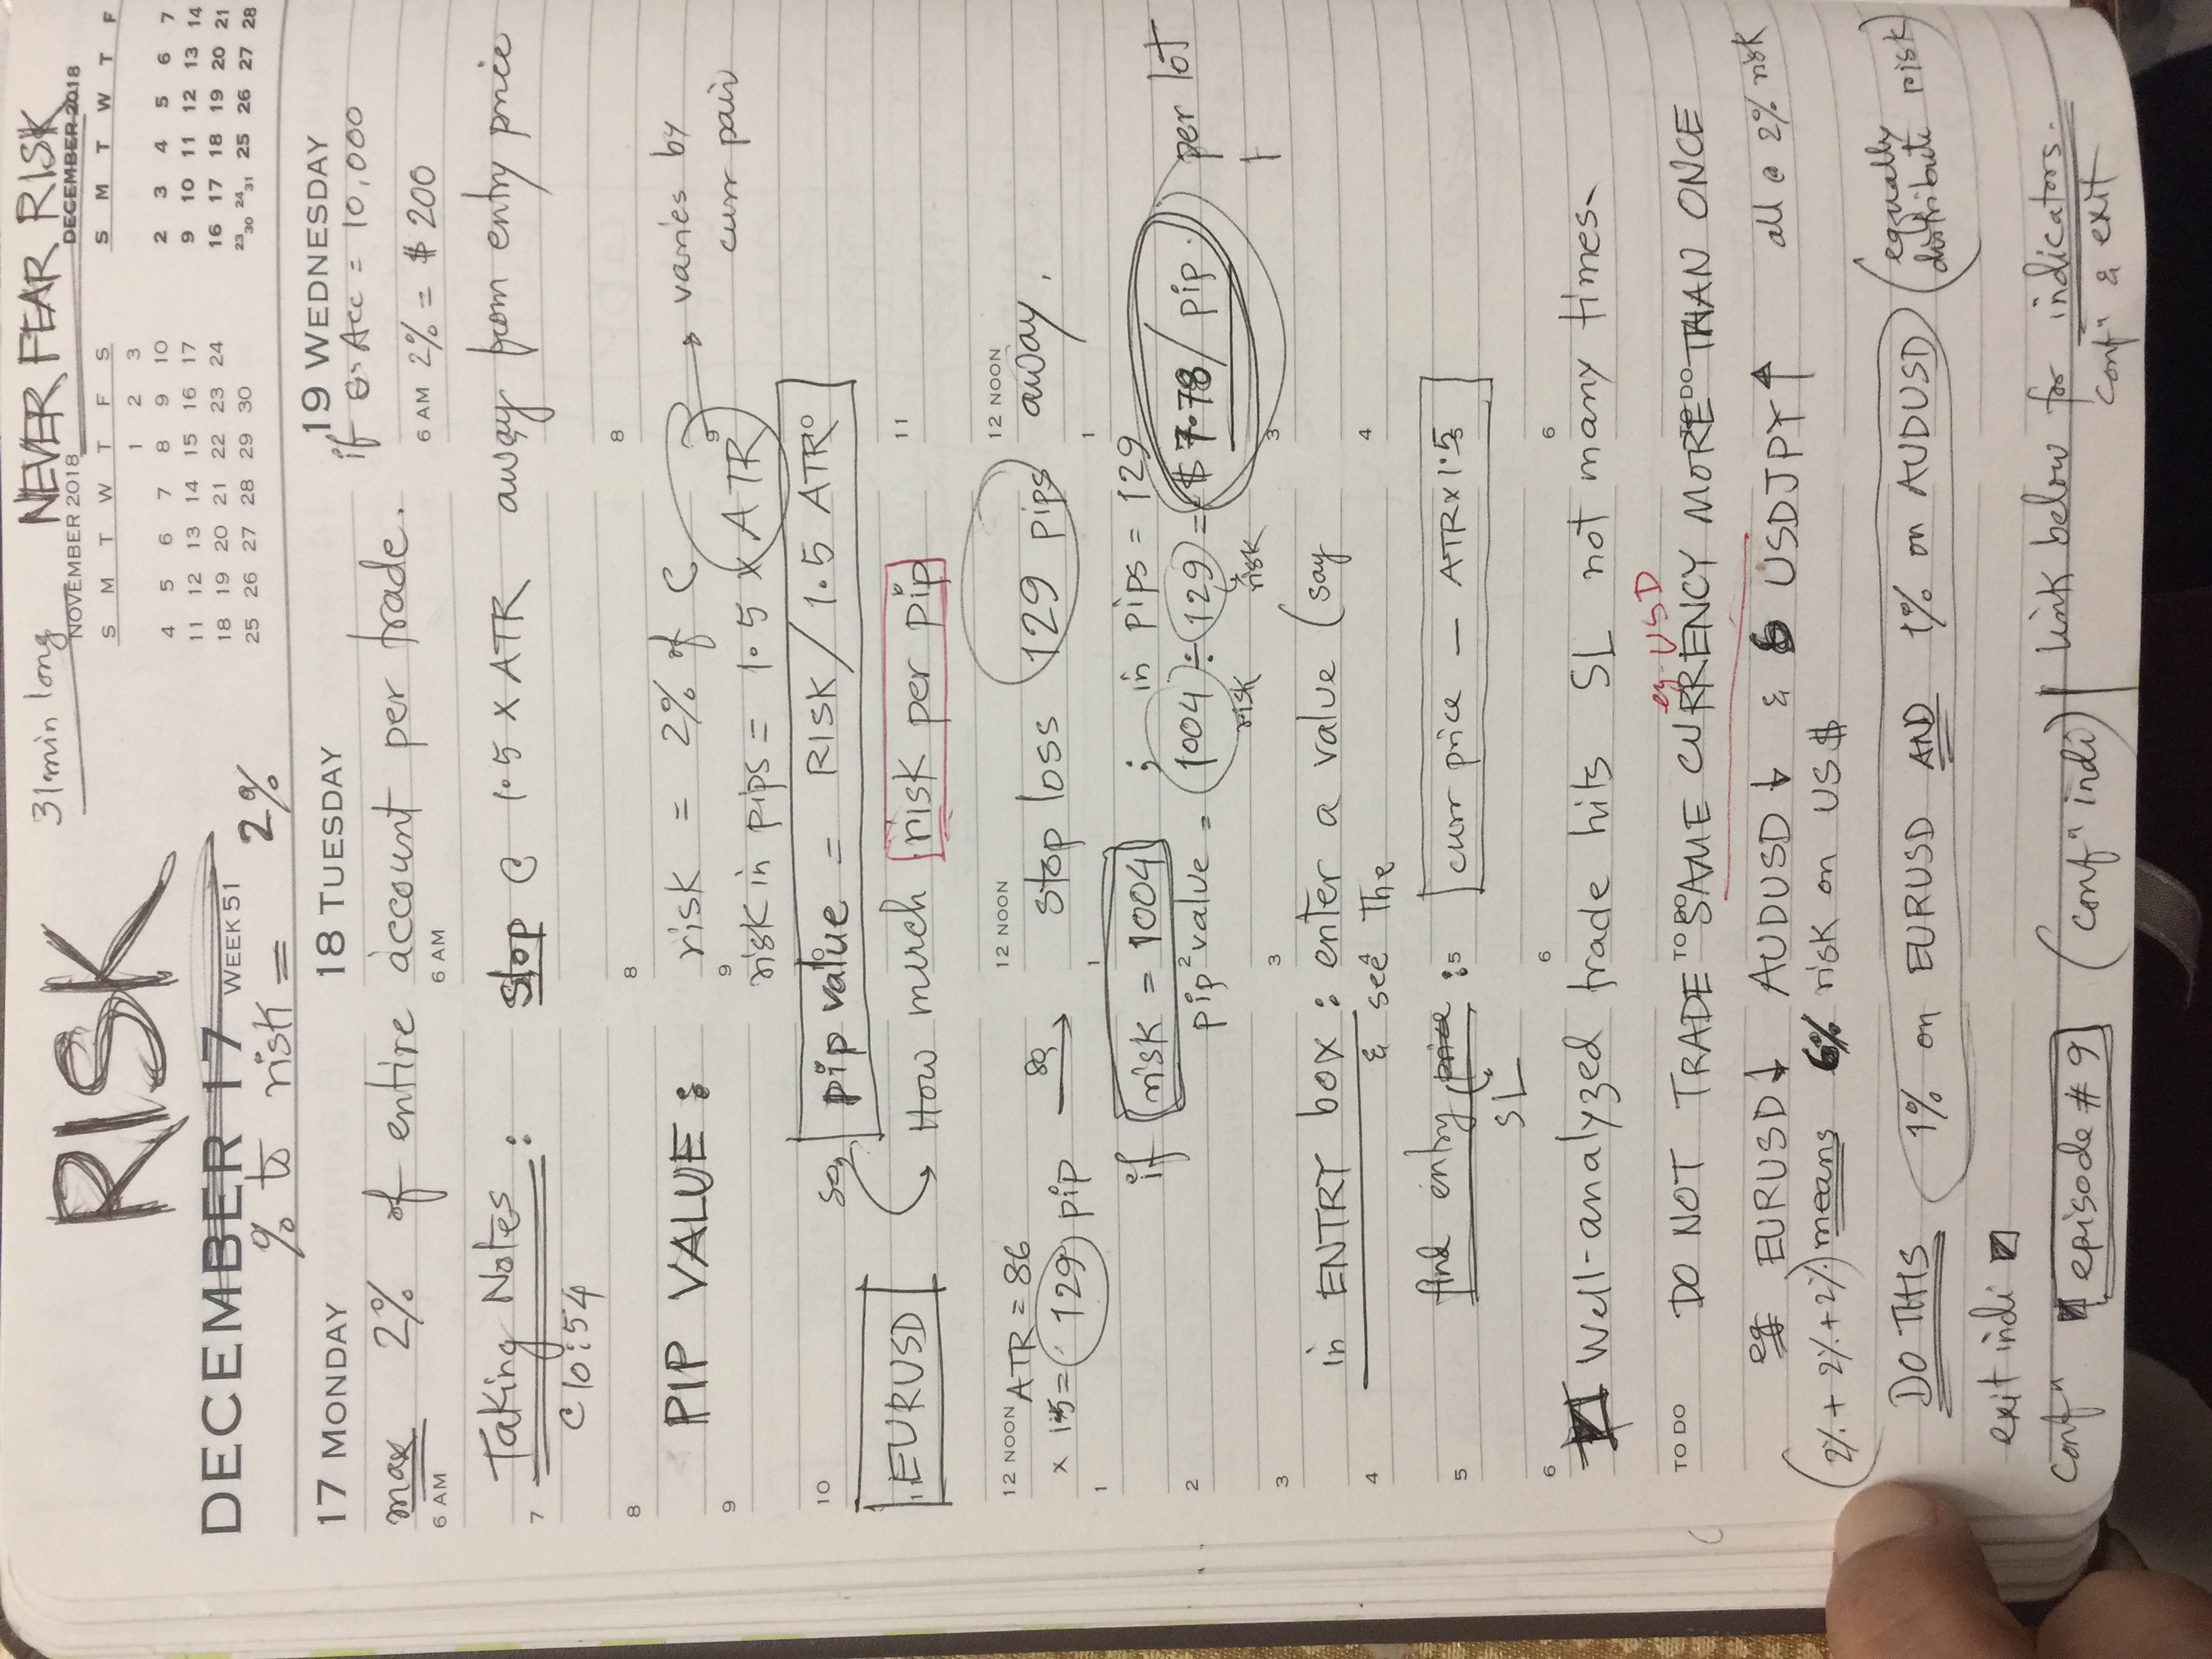 31min long NEVER FEAR RISK
RISK
NOVEMBER 2018
S M T W T F S
1 2 3
4 5 6 7 8 9 10
11 12 13 14 15 16 17
18 19 20 21 22 23 24
25 26 27 28 29 30
DECEMBER 2018
S M T W T F
2 3 4 5 6 7
9 10 11 12 13 14
16 17 18 19 20 21
23 30 24 31 25 26 27 28
DECEMBER 17 WEEK 51
% to risk = 2%
17 MONDAY 18 TUESDAY 19 WEDNESDAY
if Acc = 10,000
max 2% of entire account per trade.
6 AM 6 AM 6 AM 2% = $200
Taking Notes : stop @ 1.5 X ATR away from entry price
7
@ 10:54
8 8 8
PIP VALUE : risk = 2% of C varies by
curr pair
9 9 9
risk in pips = 1.5 X ATR
10 so, pip value = RISK / 1.5 ATR
EURUSD
How much risk per pip
11 11
12 NOON 12 NOON 12 NOON
ATR = 86
x 1.5 = 129 pip so stop loss 129 pips away.
1 1 1
if risk = 1004 ; in pips = 129
2 2
pip value = 1004 ÷ 129 = $7.78 / pip. per lot
risk risk
3 3 3
in ENTRY box : enter a value (say
4 4 4
& see the
find entry price : curr price - ATR x 1.5
5 5
SL
6 6 6
Well-analyzed trade hits SL not many times.
eg USD
TO DO TO DO TO DO
DO NOT TRADE SAME CURRENCY MORE THAN ONCE
eg EURUSD↓ AUDUSD↓ & USDJPY↑ all @ 2% risk
(2%+2%+2%) means 6% risk on US$
DO THIS 1% on EURUSD AND 1% on AUDUSD (equally distribute risk)
exit indi
confⁿ episode #9 (confⁿ indi) | link below for indicators.
confⁿ & exit